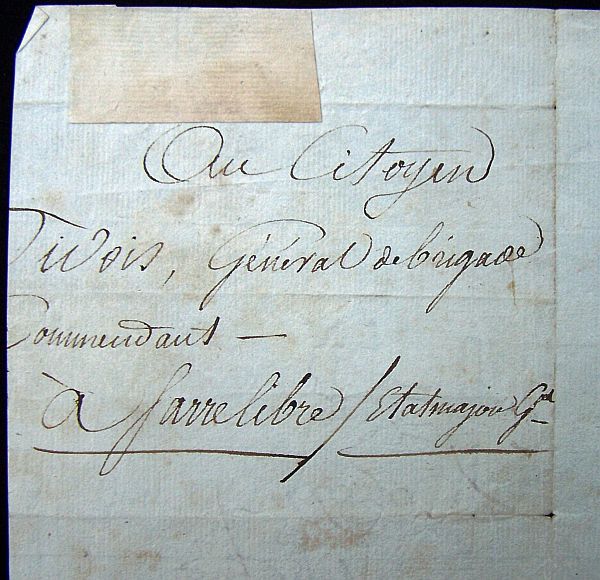 Au Citoyen
Divois, Général de brigade
Commendant —
à Sarrelibre / Etatmajor Gal